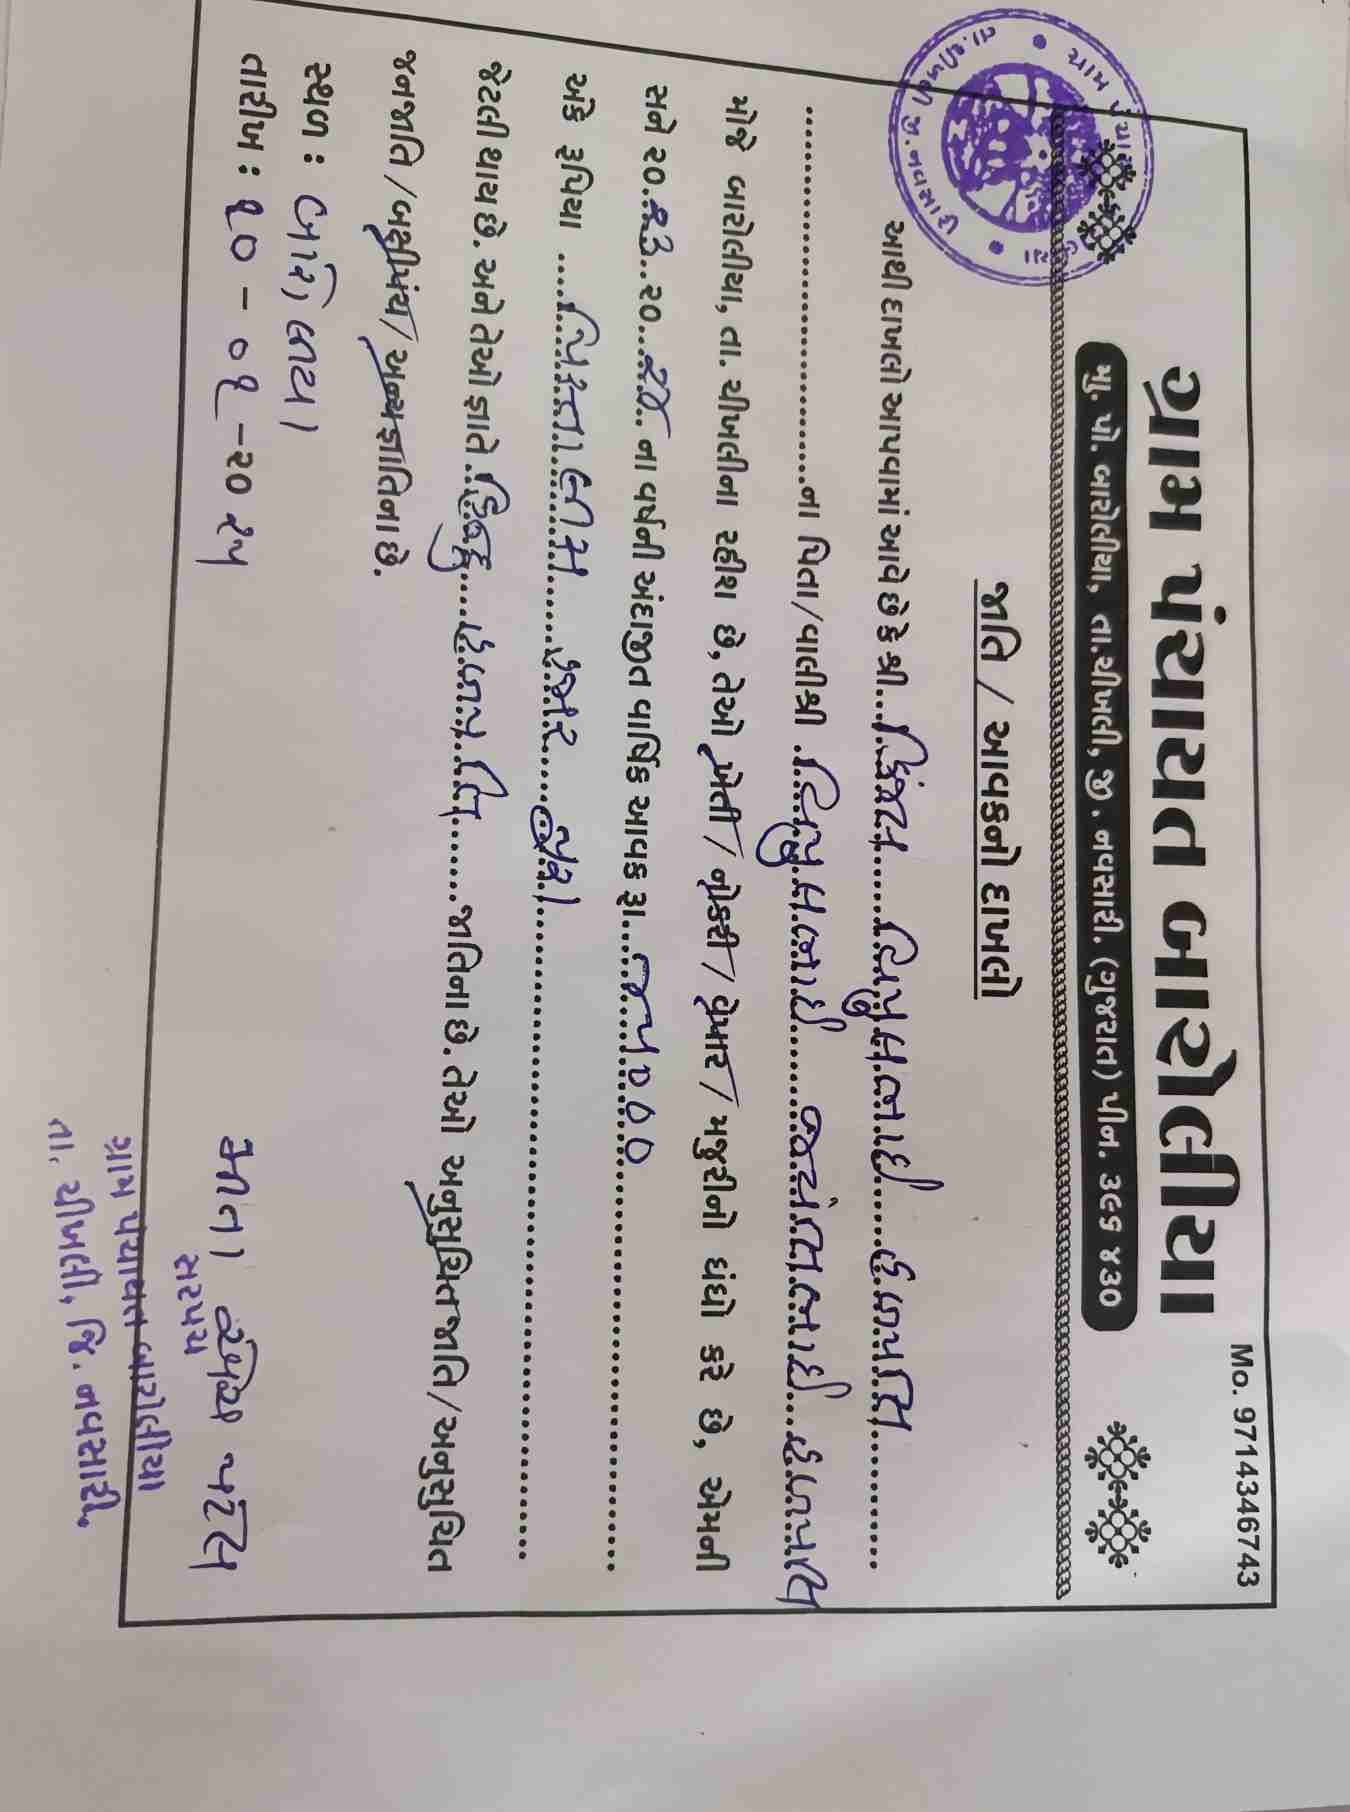 Mo. 9714346743
ગ્રામ પંચાયત બારોલીયા
મુ. પો. બારોલીયા, તા.ચીખલી, જી. નવસારી. (ગુજરાત) પીન. ૩૯૬ ૪૩૦
જાતિ / આવકનો દાખલો
આથી દાખલો આપવામાં આવે છે કે શ્રી... વિપુલભાઈ હળપતિ
ના પિતા/વાલીશ્રી વિપુલભાઈ જયંતિભાઈ હળપતિ
મોજે બારોલીયા, તા. ચીખલીના રહીશ છે, તેઓ ખેતી / નોકરી / વેપાર / મજુરીનો ધંધો કરે છે, એમની
સને ૨૦.૨૩..૨૦...૨૪. ના વર્ષની અંદાજીત વાર્ષિક આવક રૂા....૪૫૦૦૦
અંકે રૂપિયા .... પિસ્તાલીસ હજાર પુરા
જેટલી થાય છે. અને તેઓ જ્ઞાતે હિન્દુ હળપતિ જાતિના છે. તેઓ અનુસુચિત જાતિ / અનુસુચિત
જનજાતિ / બક્ષીપંચ / અન્ય જ્ઞાતિના છે.
સ્થળ : બારોલીયા
તારીખ : ૧૦ - ૦૧ - ૨૦૨૫
સરપંચ
ગ્રામ પંચાયત બારોલીયા
તા. ચીખલી, જિ. નવસારી.